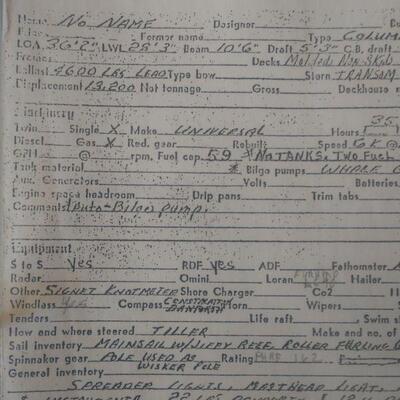 Name No NAME Designer
Former name Type COLUM
LOA 36'2" LWL 28'3" Beam 10'6" Draft 5'3" C.B. draft
Frames Decks Molded Non Skid
Ballast 4600 LBS LEAD Type bow Stern TRANSOM
Displacement 13,200 Net tonnage Gross Deckhouse
Machinery
Twin Single X Make UNIVERSAL Hours
Diesel Gas X Red. gear Rebuilt Speed 6K @
GPH @ rpm. Fuel cap. 59 * No TANKS, TWO FUEL
Tank material * Bilge pumps WHALE
Aux. Generators Volts Batteries
Engine space headroom Drip pans Trim tabs
Comments Auto-Bilge pump.
Equipment
S to S yes RDF yes ADF Fathometer
Radar Omini Loran Hailer
Other SIGNET KNOTMETER Shore Charger Co2
Windlass yes Compass CONSTELLATION DANFORTH Horn Wipers
Tenders Life raft Swim
How and where steered TILLER Make and no. of
Sail inventory MAINSAIL W/JIFFY REEF, ROLLER FURLING
Spinnaker gear POLE USED AS WISKER POLE Rating PHRF 162
General inventory
SPREADER LIGHTS, MASTHEAD LIGHT,